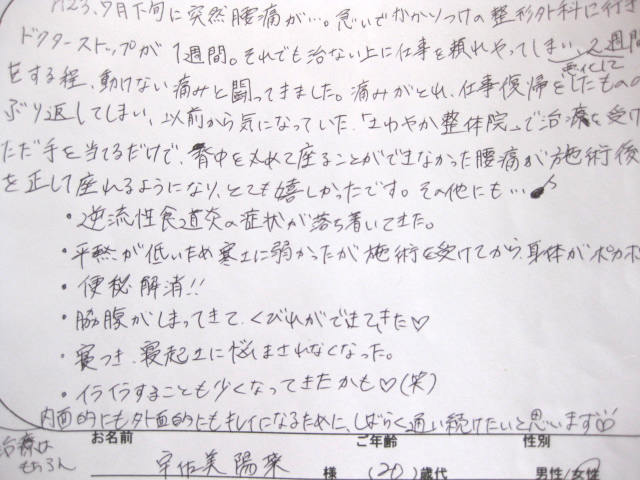 H23、7月下旬に突然腰痛が…。急いでかかりつけの整形外科に行き
ドクターストップが1週間。それでも治ない上に仕事を頼れやってしまい、2週間
悪化して
をする程、動けない痛みと闘ってきました。痛みがとれ、仕事復帰をしたものの
ぶり返してしまい、以前から気になっていた「さわやか整体院」で治療を受け
ただ手を当てるだけで、背中を丸めて座ることができなかった腰痛が施術後
を正して座れるようになり、とても嬉しかったです。その他にも…
・逆流性食道炎の症状が落ち着いてきた。
・平熱が低いため寒さに弱かったが施術を受けてから、身体がポカポ
・便秘解消!!
・脇腹がしまってきて、くびれができてきた♡
・寝つき、寝起きに悩まされなくなった。
・イライラすることも少くなってきたかも♡(笑)
内面的にも外面的にもキレイになるために、しばらく通い続けたいと思います♡
治療は
もちろん
お名前 ご年齢 性別
宇佐美 陽菜 様 (20)歳代 男性/女性